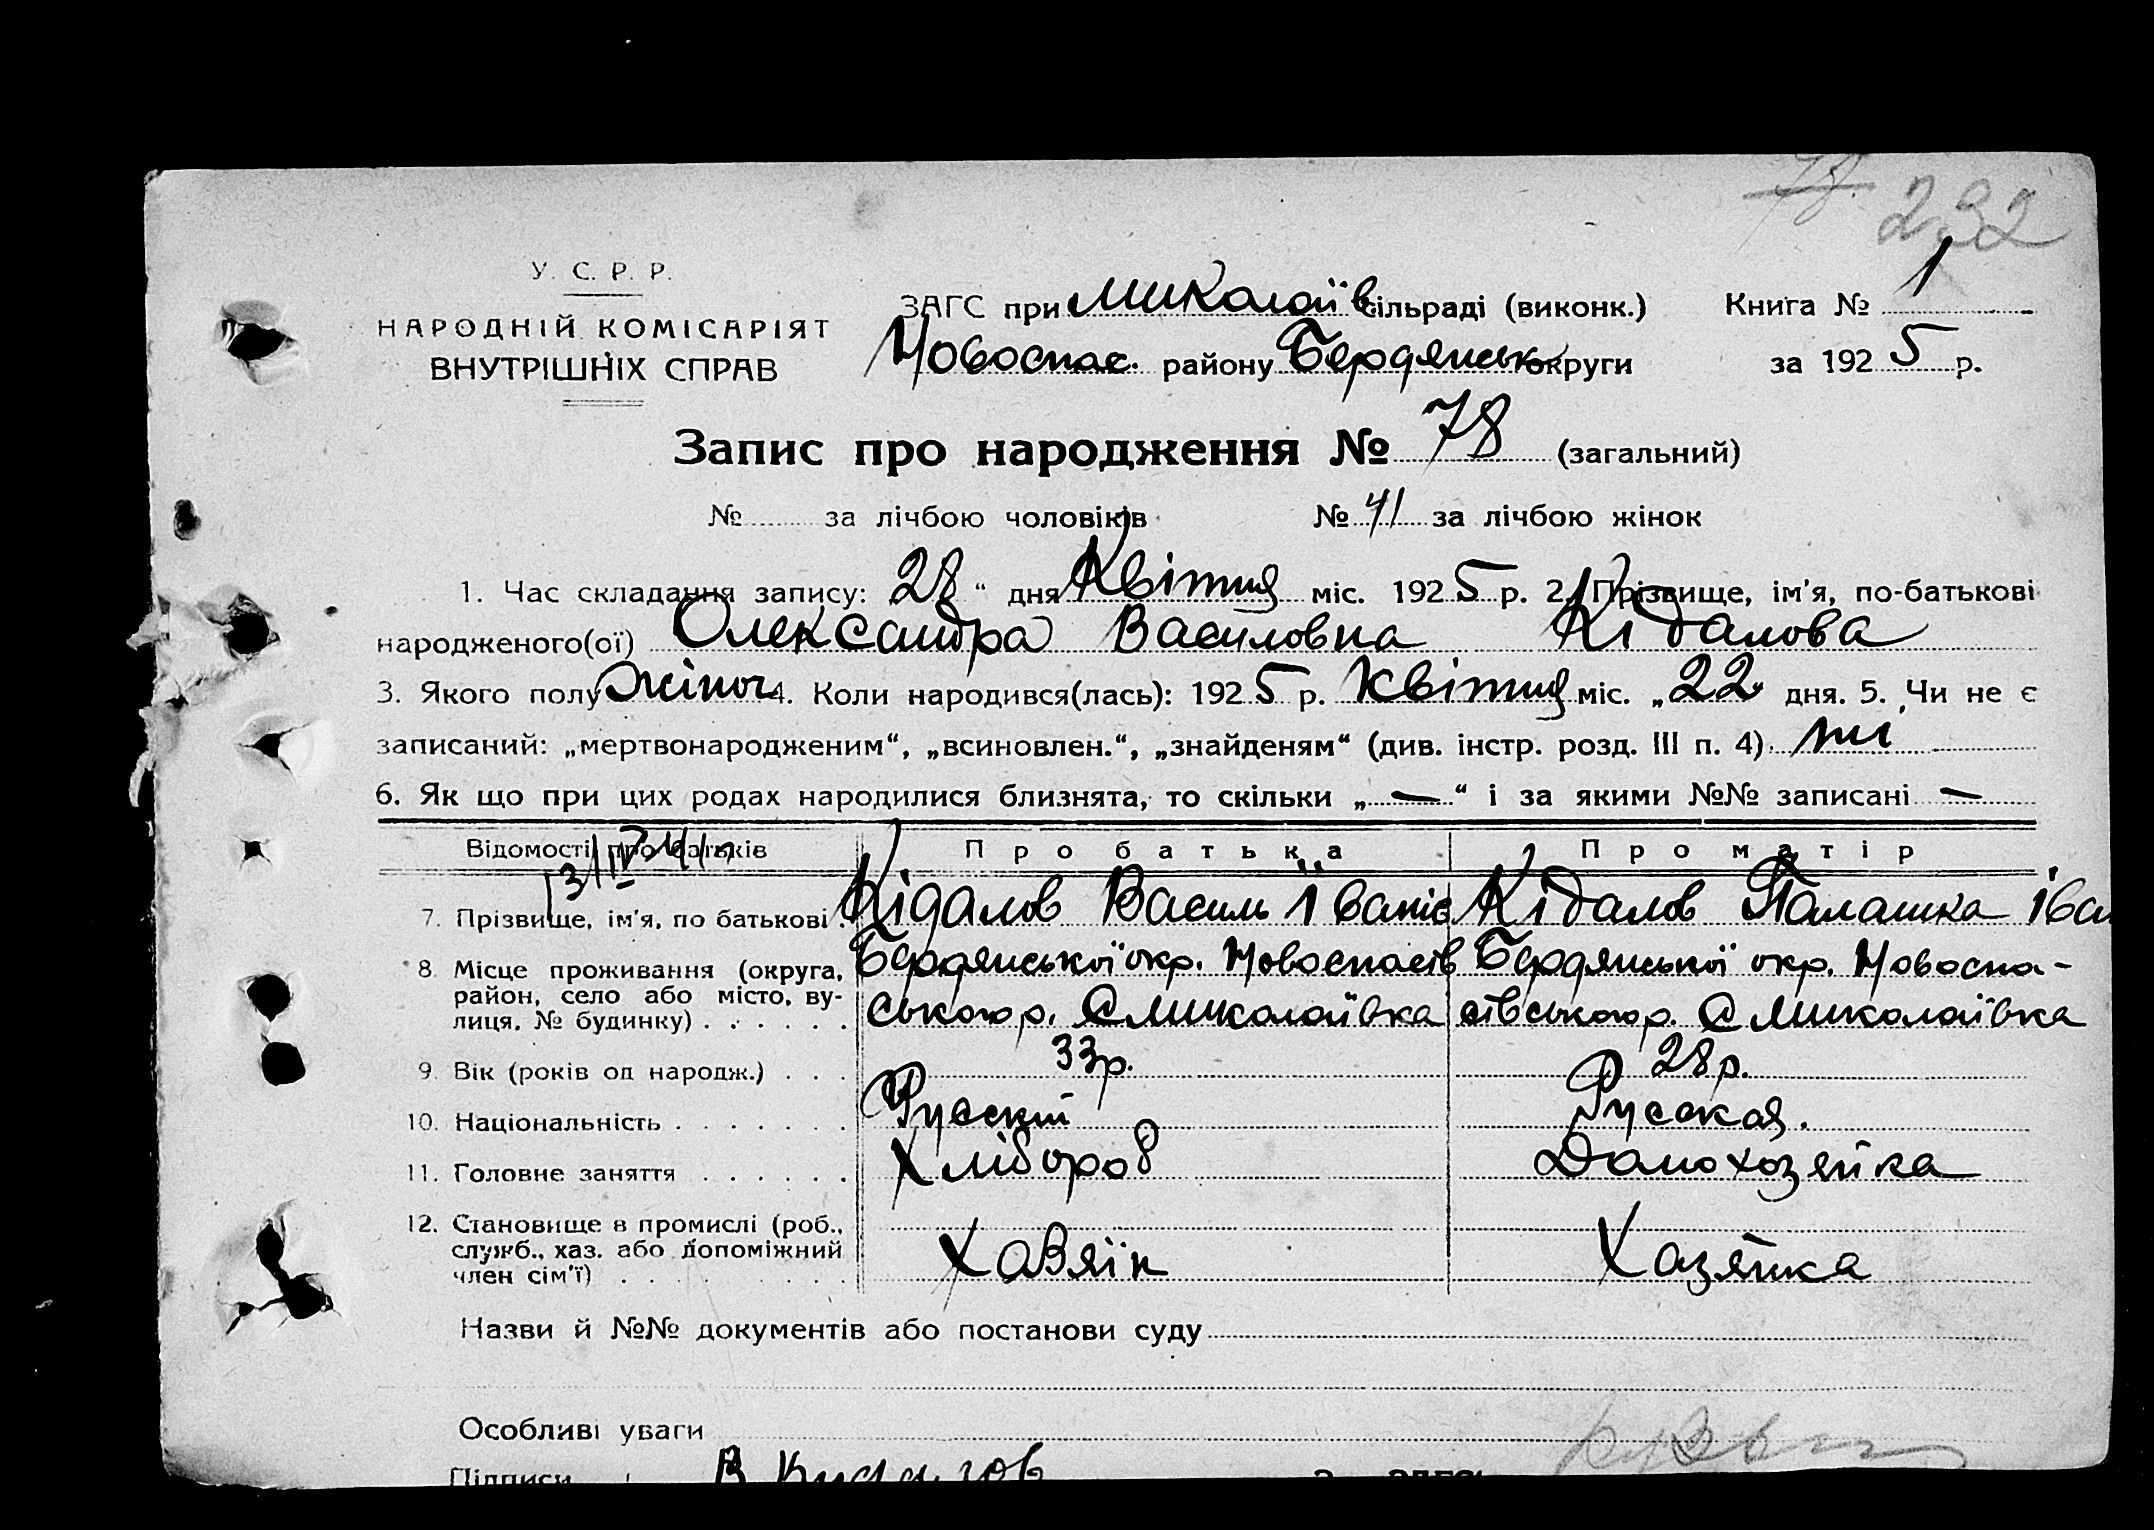 78 232
У. С. Р. Р.
НАРОДНІЙ КОМІСАРІЯТ
ВНУТРІШНІХ СПРАВ
ЗАГС при Миколаїв сільраді (виконк.) Книга № 1
Новоспас. району Бердянськ округи за 1925 р.
Запис про народження № 78 (загальний)
№ за лічбою чоловіків № 41 за лічбою жінок
1. Час складання запису: 28 “ дня Квітня міс. 1925 р. 2. Прізвище, ім'я, по-батькові
народженого(ої) Олександра Василовна Кідалова
3. Якого полу жіноч 4. Коли народився(лась): 1925 р. Квітня міс. „22“ дня. 5. Чи не є
записаний: „мертвонародженим“, „всиновлен.“, „знайденям“ (див. інстр. розд. III п. 4) ні
6. Як що при цих родах народилися близнята, то скільки „—“ і за якими №№ записані —
Відомості про батьків Про батька Про матір
7. Прізвище, ім'я, по батькові. Кідалов Василь Іванів Кідалов Палашка Іван
8. Місце проживання (округа, Бердянської окр. Новоспасів Бердянської окр. Новоспа-
район, село або місто, ву-
лиця, № будинку) . . . . . . ського р. С Миколаївка сівського р. С Миколаївка
9. Вік (років од народж.) . . . 33 р. 28 р.
10. Національність . . . . . . . Руський Руская.
11. Головне заняття . . . . . . Хлібороб Домохозяйка
12. Становище в промислі (роб.,
служб., хаз. або допоміжний
член сім'ї) . . . . . . . . Хазяїн Хазяйка
Назви й №№ документів або постанови суду
Особливі уваги
Підписи В Кидалов